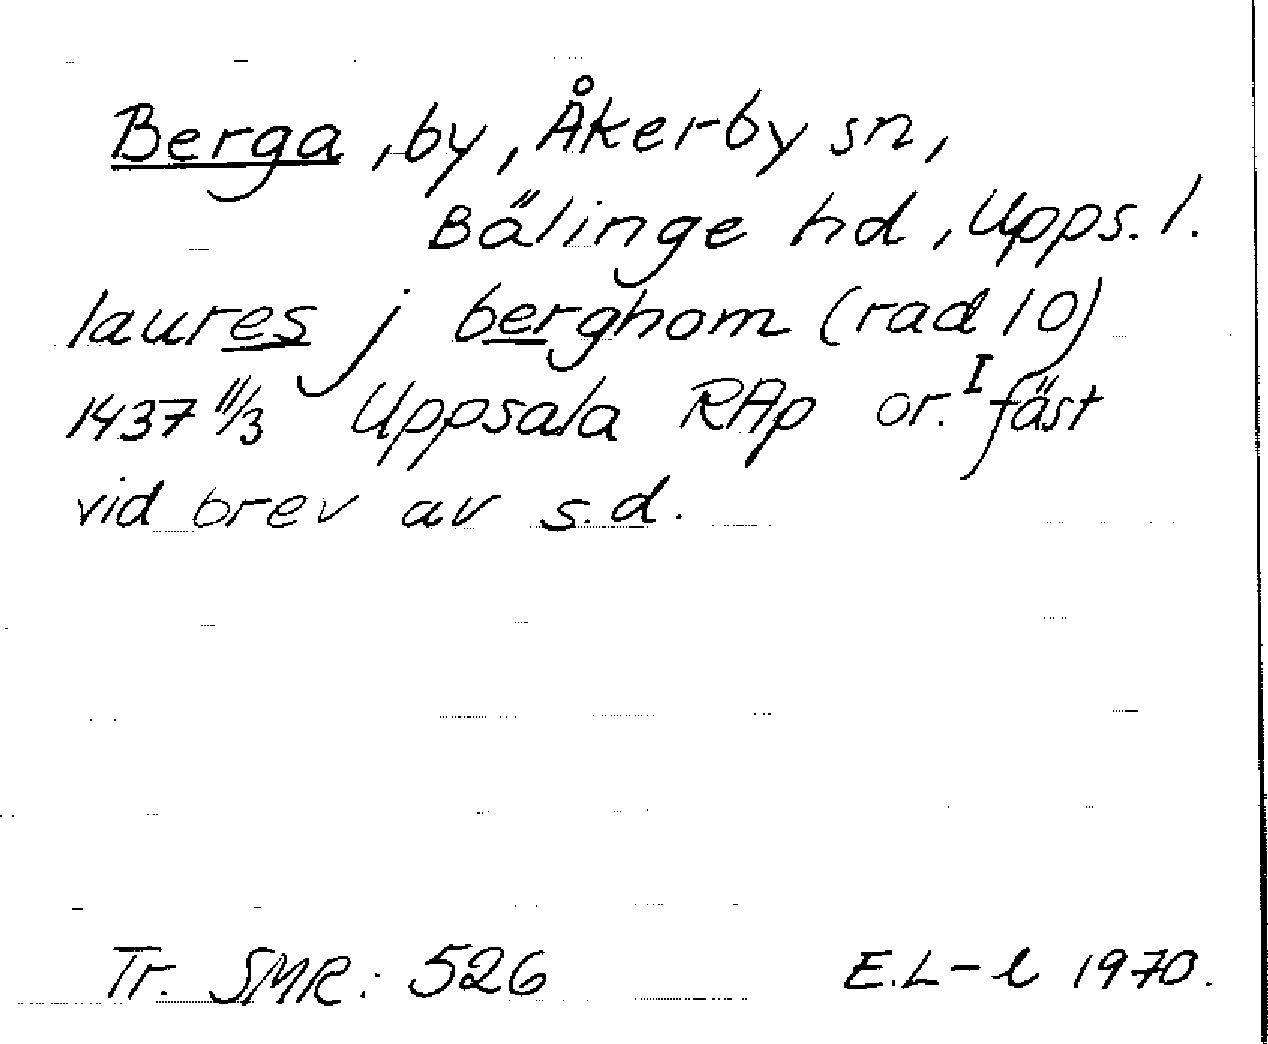 Berga, by, Åkerby sn,
Bälinge hd, Upps. l.
laures j berghom (rad 10)
1437 11/3 Uppsala RAp or. I fäst
vid brev av s.d.
Tr. SMR: 526 E.L-l 1970.